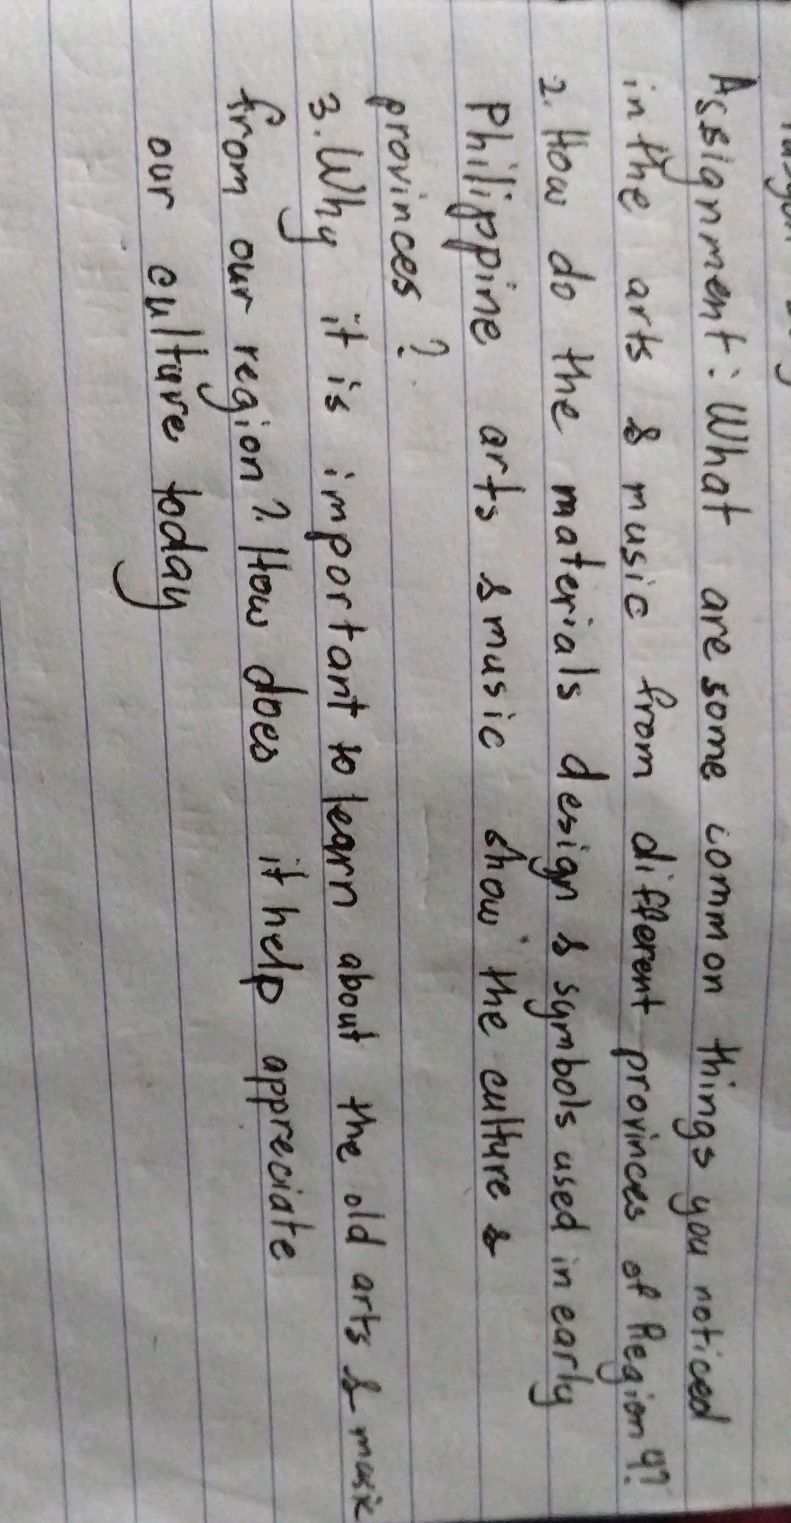 Assignment: What are some common things you noticed
in the arts & music from different provinces of Region 4?
2. How do the materials design & symbols used in early
Philippine arts & music show the culture &
provinces?
3. Why it is important to learn about the old arts & music
from our region? How does it help appreciate
our culture today